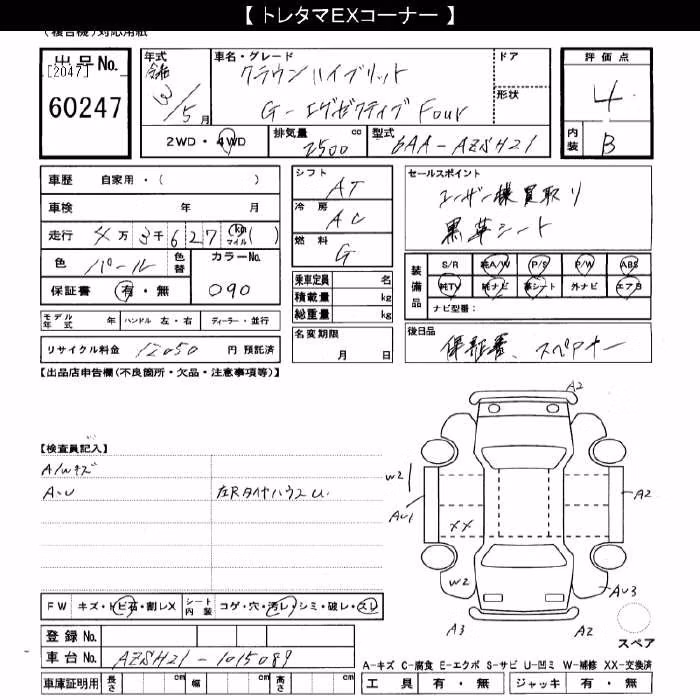 【 トレタマEXコーナー 】
(複合機)対応用紙
出品No.
[2047]
60247
年式
3/5月
車名・グレード
クラウンハイブリット
G-エグゼクティブ Four
ドア
形状
評価点
4
内装 B
2WD・4WD
排気量 2500 cc
型式 6AA-AZSH21
車歴 自家用・( )
車検 年 月
走行 4万3千627 (km マイル)( )
色 パール 色替
カラーNo. 090
保証書 有・無
モデル年式 年 ハンドル 左・右 ディーラー・並行
リサイクル料金 12050 円 預託済
シフト AT
冷房 AC
燃料 G
乗車定員 名
積載量 kg
総重量 kg
名変期限
月 日
セールスポイント
ユーザー様買取り
黒革シート
装備品
S/R 純A/W P/S P/W ABS
純TV 純ナビ 革シート 外ナビ エアB
ナビ型番:
後日品
保証書、スペアキー
【出品店申告欄(不良箇所・欠品・注意事項等)】
【検査員記入】
A/Wキズ
A・U 左Rタイヤハウスu.
FW キズ・トビ石・割レX
シート内装 コゲ・穴・汚レ・シミ・破レ・スレ
登録No.
車台No. AZSH21-1015089
車庫証明用 長さ cm 幅 cm 高さ cm
A2
W2
AU1
A2
XX
W2
AU3
A3
A2
スペア
A-キズ C-腐食 E-エクボ S-サビ U-凹ミ W-補修 XX-交換済
工具 有・無 ジャッキ 有・無